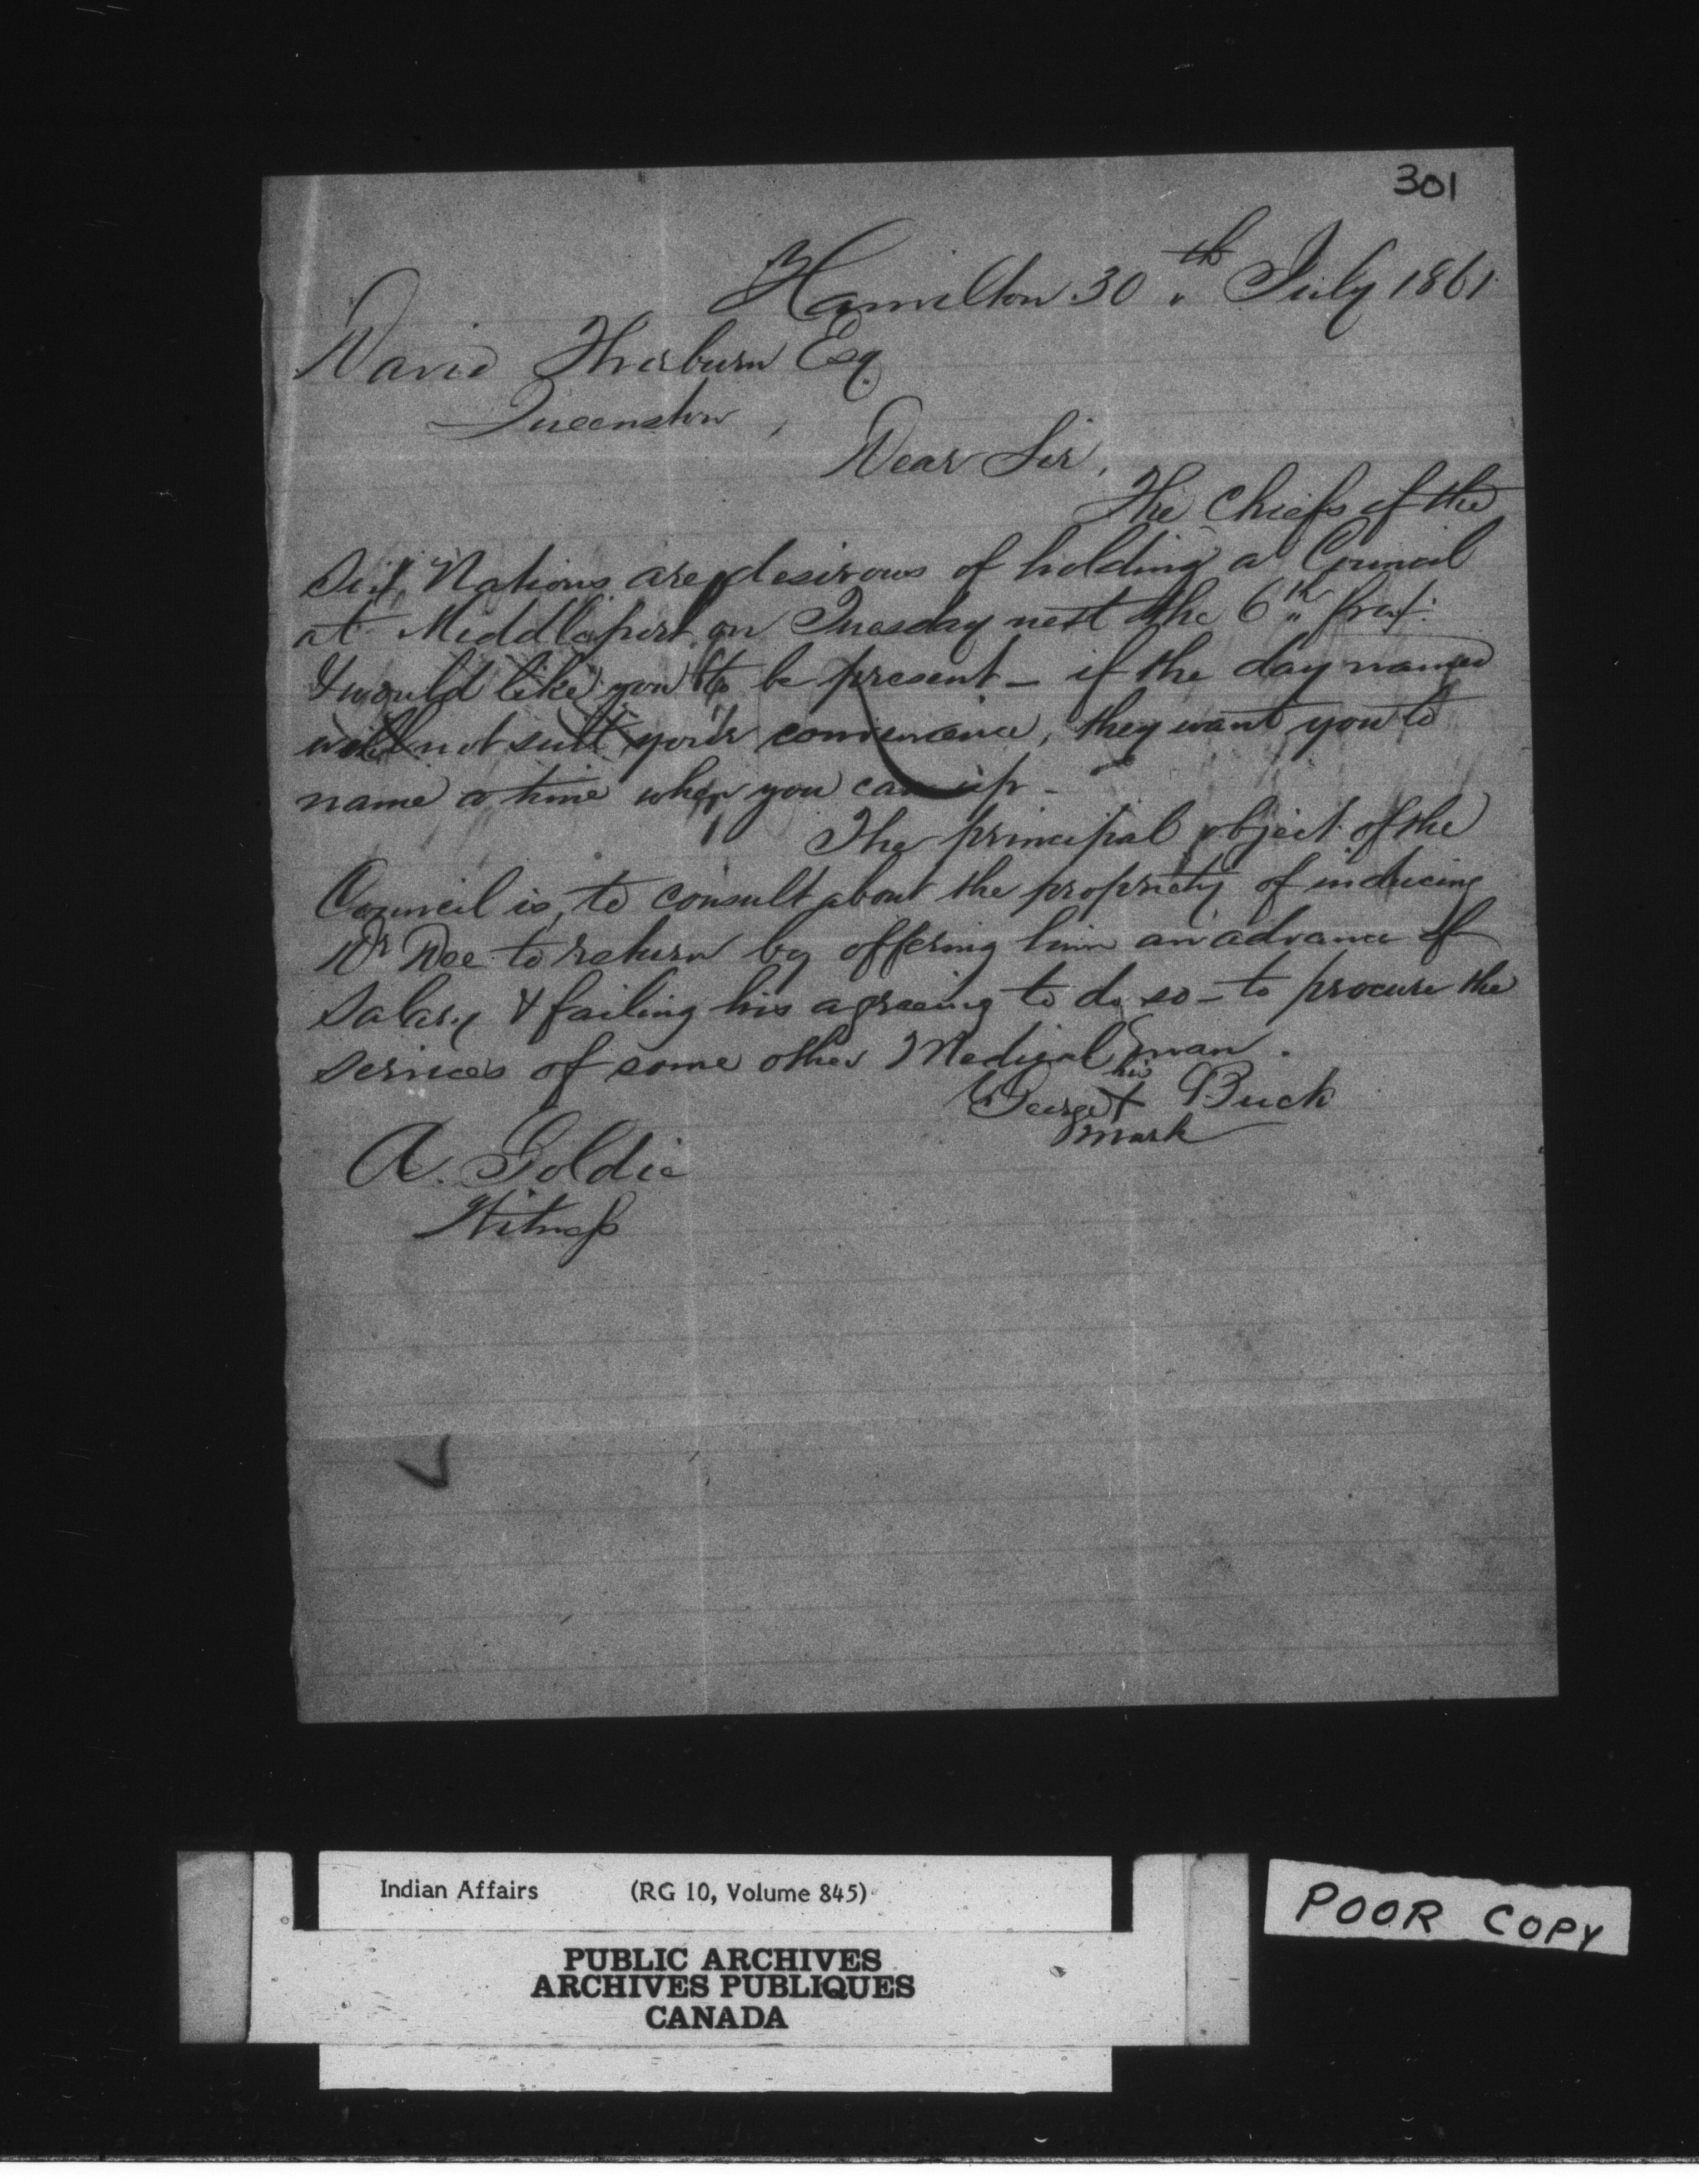 301
Hamilton 30th July 1861
David Thorburn Esq
Queenston,
Dear Sir,
The Chiefs of the
Six Nations are desirous of holding a Council
at Middleport on Tuesday next the 6th prox:
& would like you to be present – if the day named
will not suit your convenience, they want you to
name a time when you can up –
The principal object of the
Council is, to consult about the propriety of inducing
Dr Dee to return by offering him an advance of
Salary & failing his agreeing to do so – to procure the
services of some other Medical man.
his
George X Buck
mark
A. Goldie
Witness
Indian Affairs (RG 10, Volume 845)
PUBLIC ARCHIVES
ARCHIVES PUBLIQUES
CANADA
POOR COPY